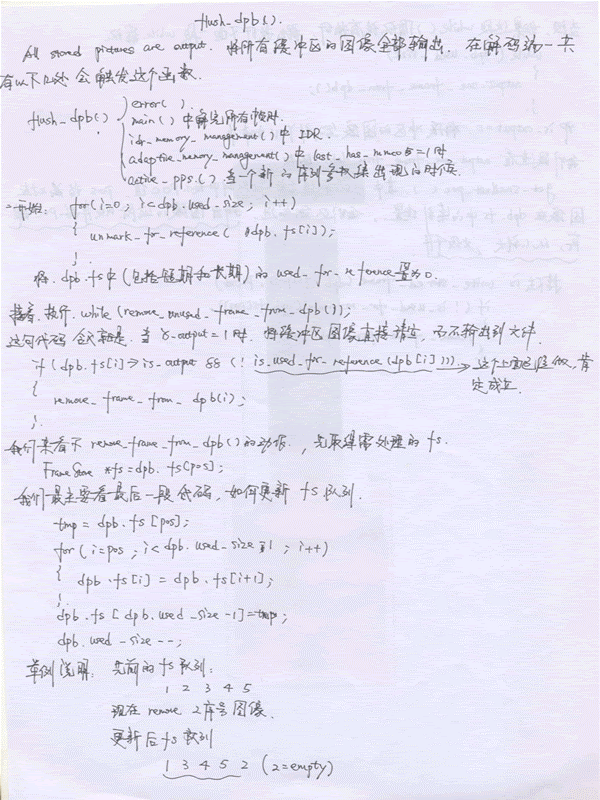 flush_dpb().
All stored pictures are output. 将所有缓冲区的图像全部输出. 在解码端一共
有以下几处会触发这个函数.
flush_dpb() { error()
main() 中解完所有帧时.
idr_memory_management() 中 IDR.
adaptive_memory_management() 中 last_has_mmco_5=1时
active_pps() 当一个新的序列参数集出现的时候.
一开始: for(i=0; i<dpb.used_size; i++)
{
unmark_for_reference( dpb.fs[i]);
}
将 dpb.fs中(包括短期和长期)的 used_for_reference置为0.
接着 执行. while (remove_unused_frame_from_dpb());
这句代码 含义就是. 当 is_output=1时. 将缓冲区图像直接清空, 而不输出到文件.
if (dpb.fs[i]->is_output && (! is_used_for_reference(dpb[i]))) → 这个上面已经做, 肯
定成立.
{
remove_frame_from_dpb(i);
}
我们来看下 remove_frame_from_dpb()的动作., 先取得需处理的 fs.
FrameStore *fs=dpb.fs[pos];
我们最主要看最后一段代码, 如何更新 fs队列.
tmp = dpb.fs[pos];
for(i=pos; i<dpb.used_size-1; i++)
{
dpb.fs[i] = dpb.fs[i+1];
}
dpb.fs[dpb.used_size-1]=tmp;
dpb.used_size--;
举例说明: 先前的 fs队列:
1 2 3 4 5
现在 remove 2序号图像.
更新后 fs队列
1 3 4 5 2 (2=empty)